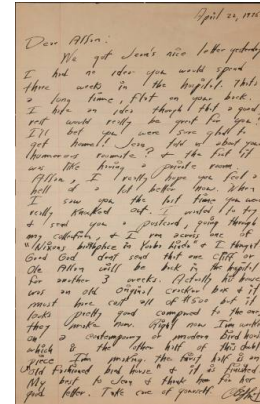 April 22, 1975
Dear Allon:
We got Jean's nice letter yesterday
I had no idea you would spend
three weeks in the hospital. That's
a long time, flat on your back.
I had an idea though that a good
rest would really be good for you.
I'll bet you were sure glad to
get home! Jean told us about your
humorous roommate, & the first bit
was like having a private room.
Allon, I really hope you feel a
hell of a lot better now. When
I saw you the last time you were
really knocked out. I wanted to try
& send you a postcard, going through
my collection, & I ran across one of
"Nixon's birthplace in Yorba Linda" & I thought
Good God don't send that one Cliff or
Ole Allon will be back in the hospital
for another 3 weeks. Actually his house
was an old original cracker box & it
must have cost all of $500 but it
looks pretty good compared to the ones
they make now. Right now I'm working
on a contemporary or modern bird house
which is the other half of this
piece I'm making. The first half is an
"old fashioned bird house" & it is finished
My best to Jean & thank her for her
good letter. Take care of yourself.
Cliff